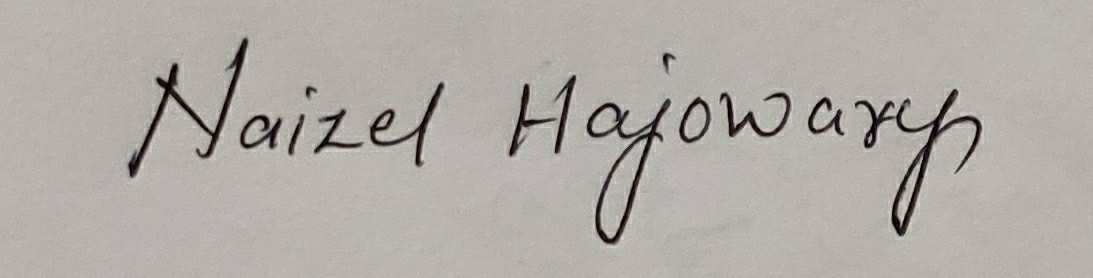 Naizel Hajowary